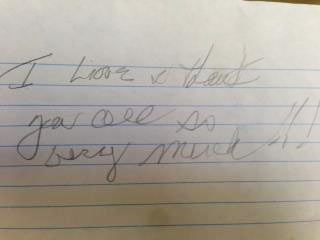 I Love & thank
you all so
very much!!!